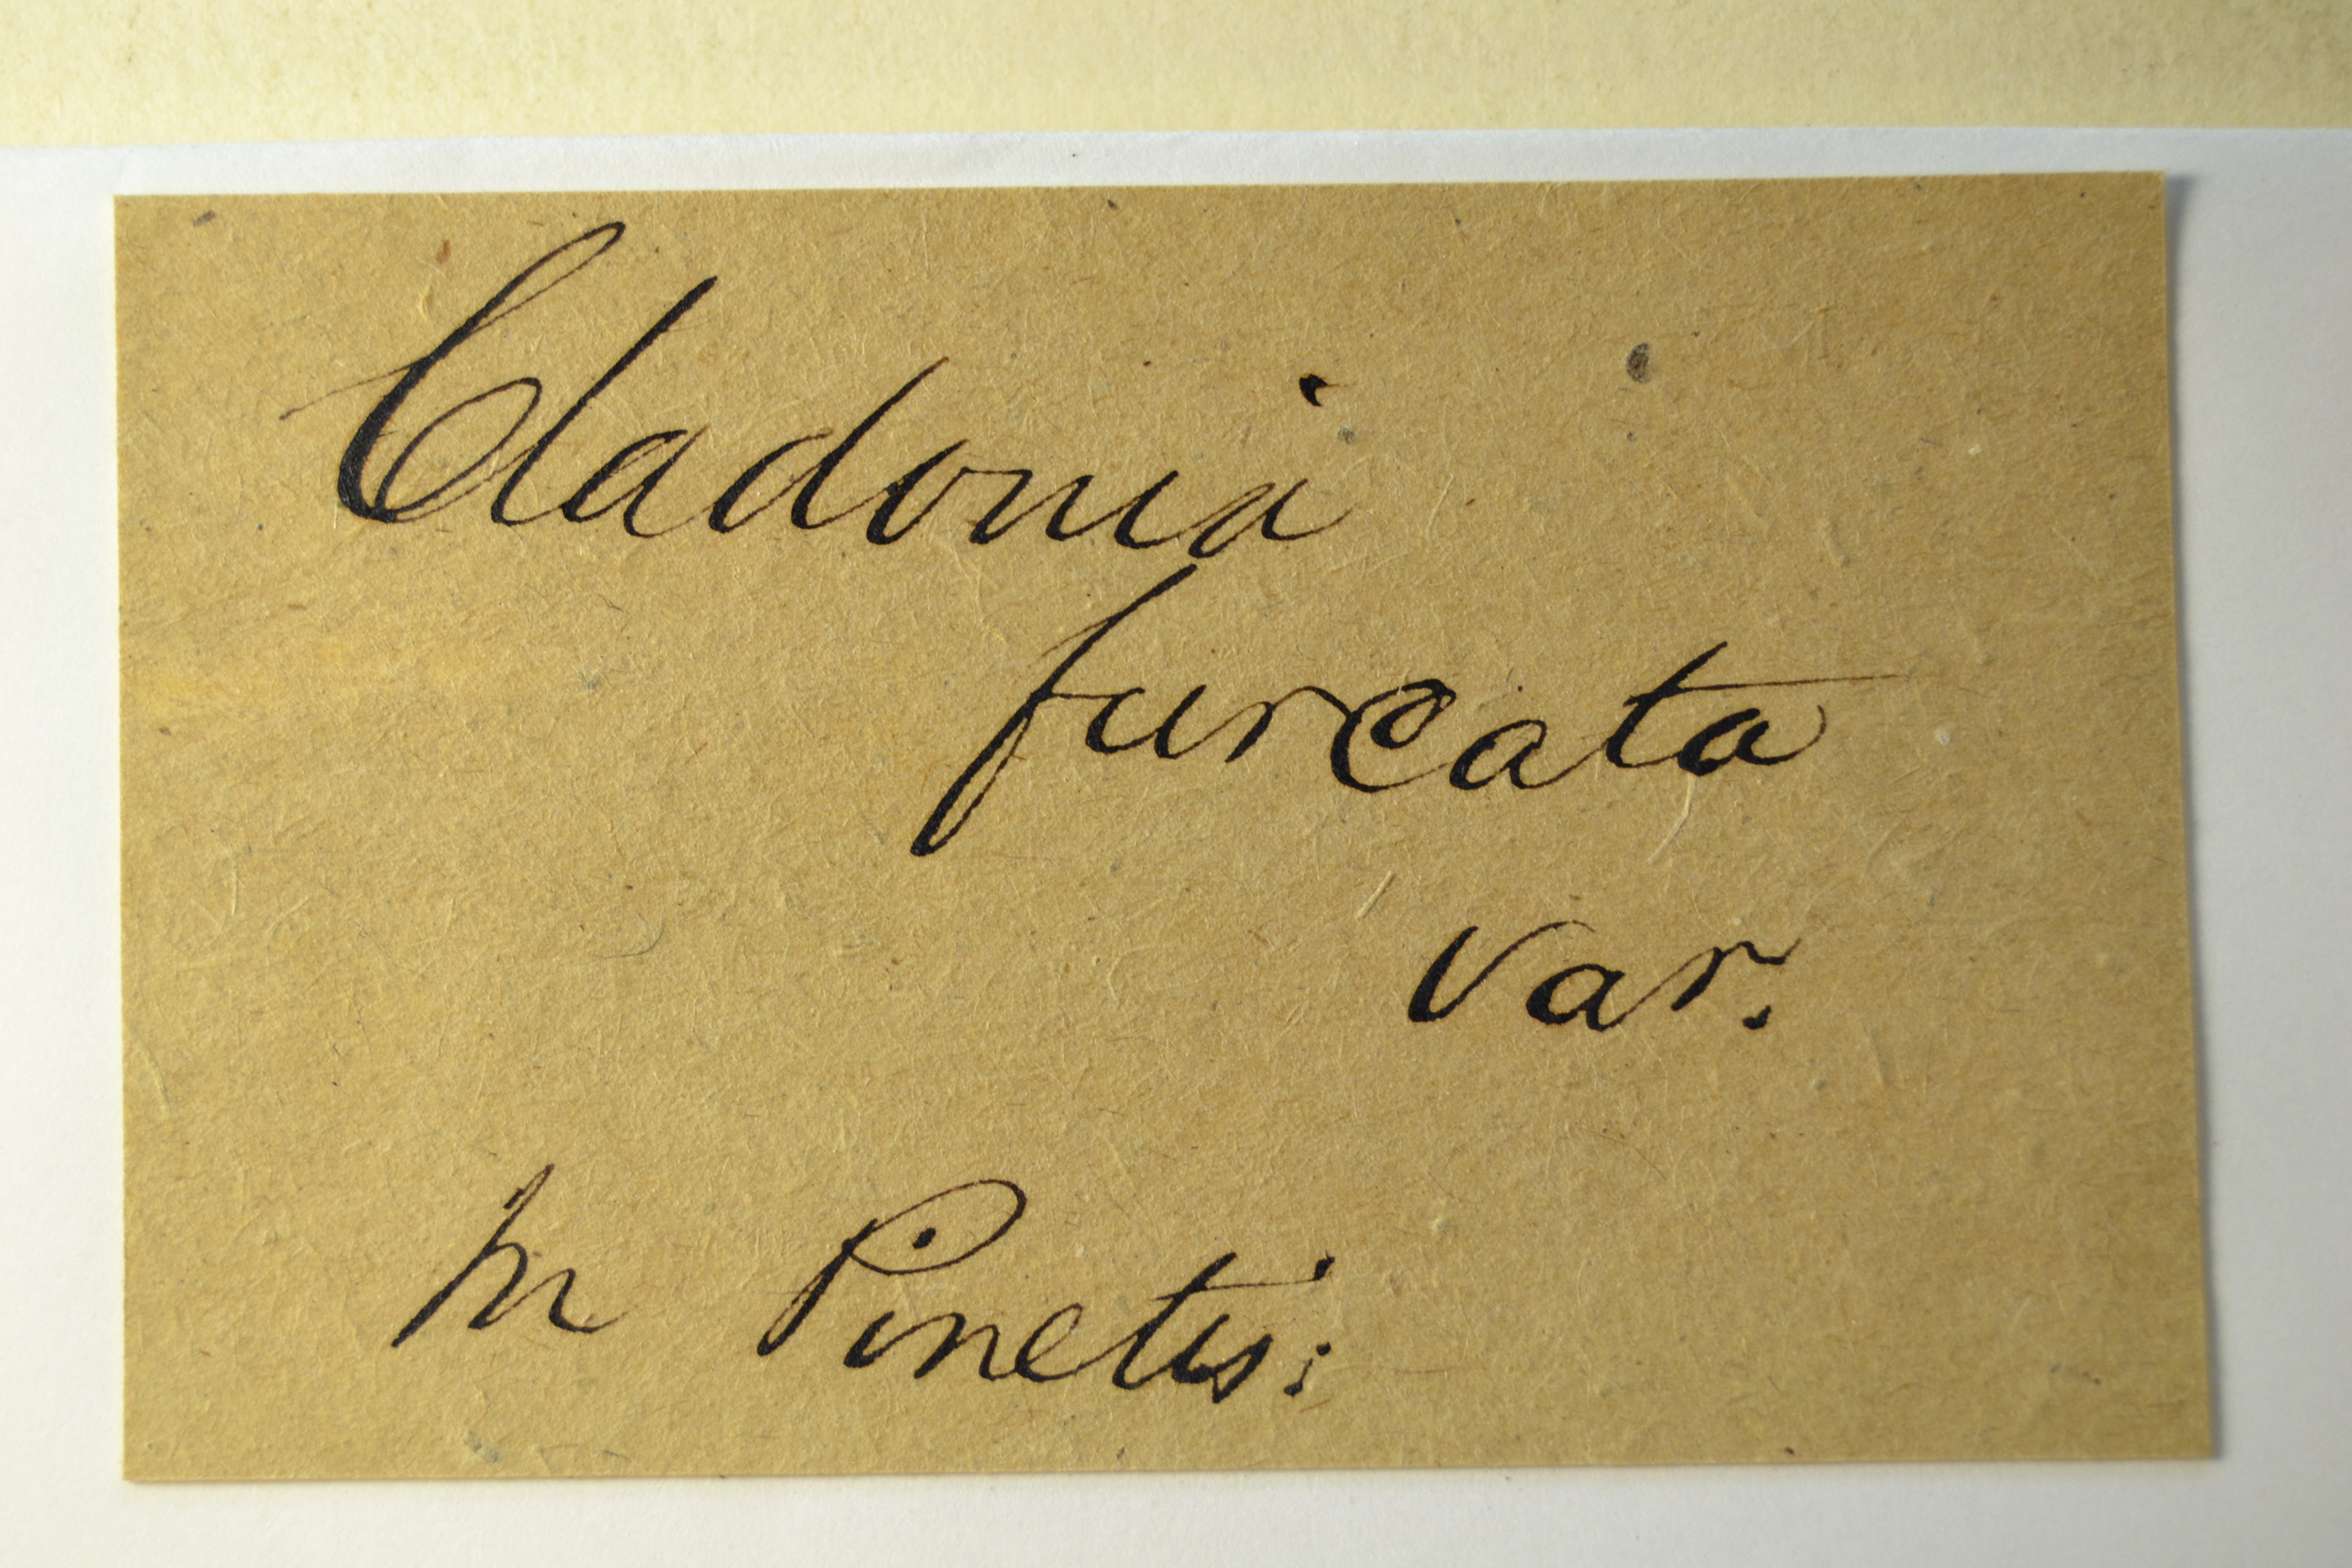 Cladonia
furcata
var.
In Pinetis: